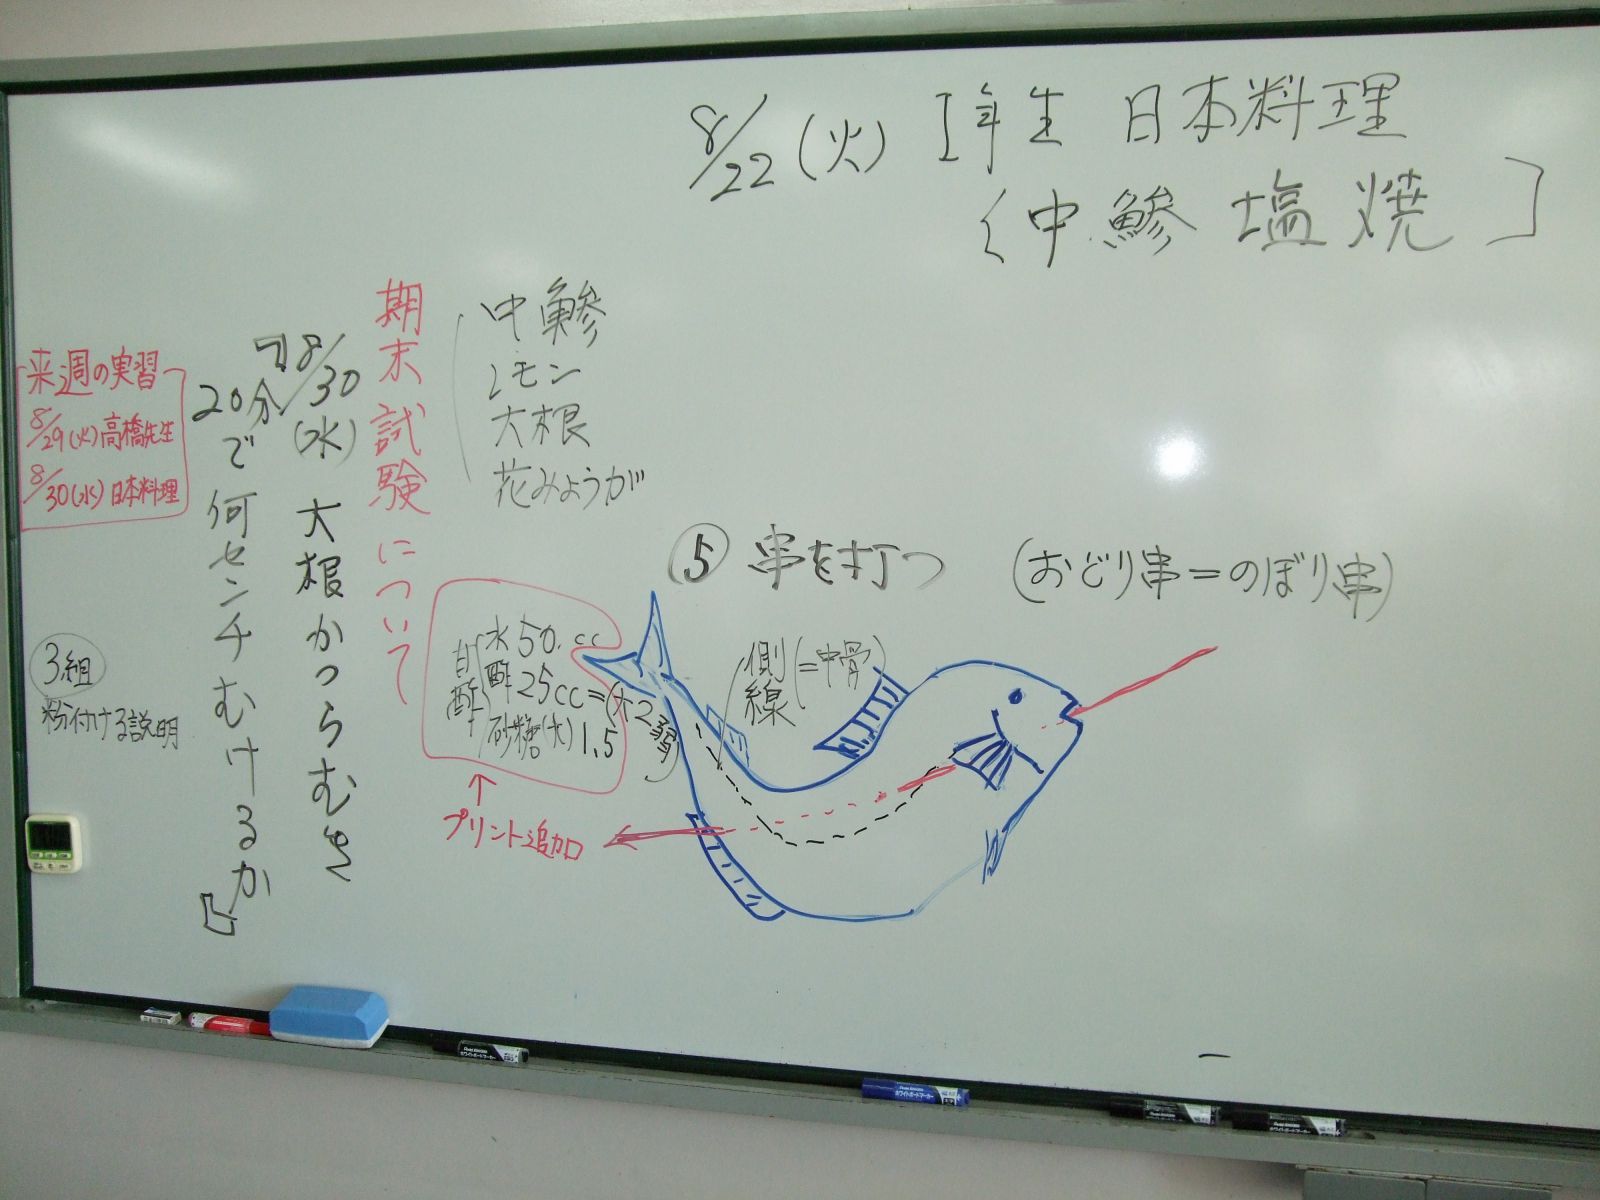 8/22(火) 1年生 日本料理
〔中鯵 塩焼〕
中鯵
レモン
大根
花みょうが
期末試験について
「8/30(水) 大根かつらむき
20分で何センチむけるか」
来週の実習
8/29(火)高橋先生
8/30(水)日本料理
3組
粉付ける説明
⑤ 串を打つ (おどり串=のぼり串)
側線(=中骨)
甘酢
水50.cc
酢25cc=(大2弱)
砂糖(大)1.5
↑
プリント追加